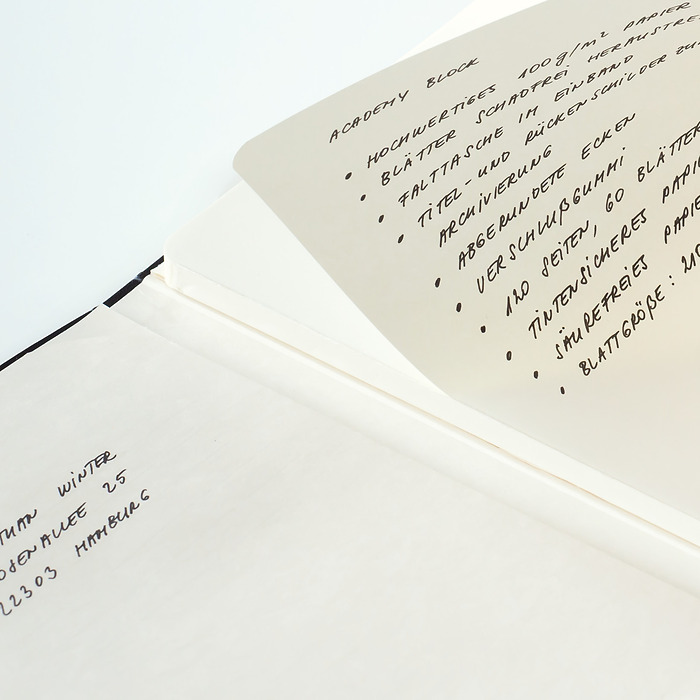 ACADEMY BLOCK
• HOCHWERTIGES 100g/m² PAPIER
BLÄTTER SCHADFREI
• FALTTASCHE IM EINBAND
• TITEL- UND RÜCKENSCHILDER
ARCHIVIERUNG
• ABGERUNDETE ECKEN
• VERSCHLUßGUMMI
• 120 SEITEN, 60 BLÄTTER
• TINTENSICHERES
• SÄUREFREIES
• BLATTGRÖßE:
WINTER
25
22303 HAMBURG